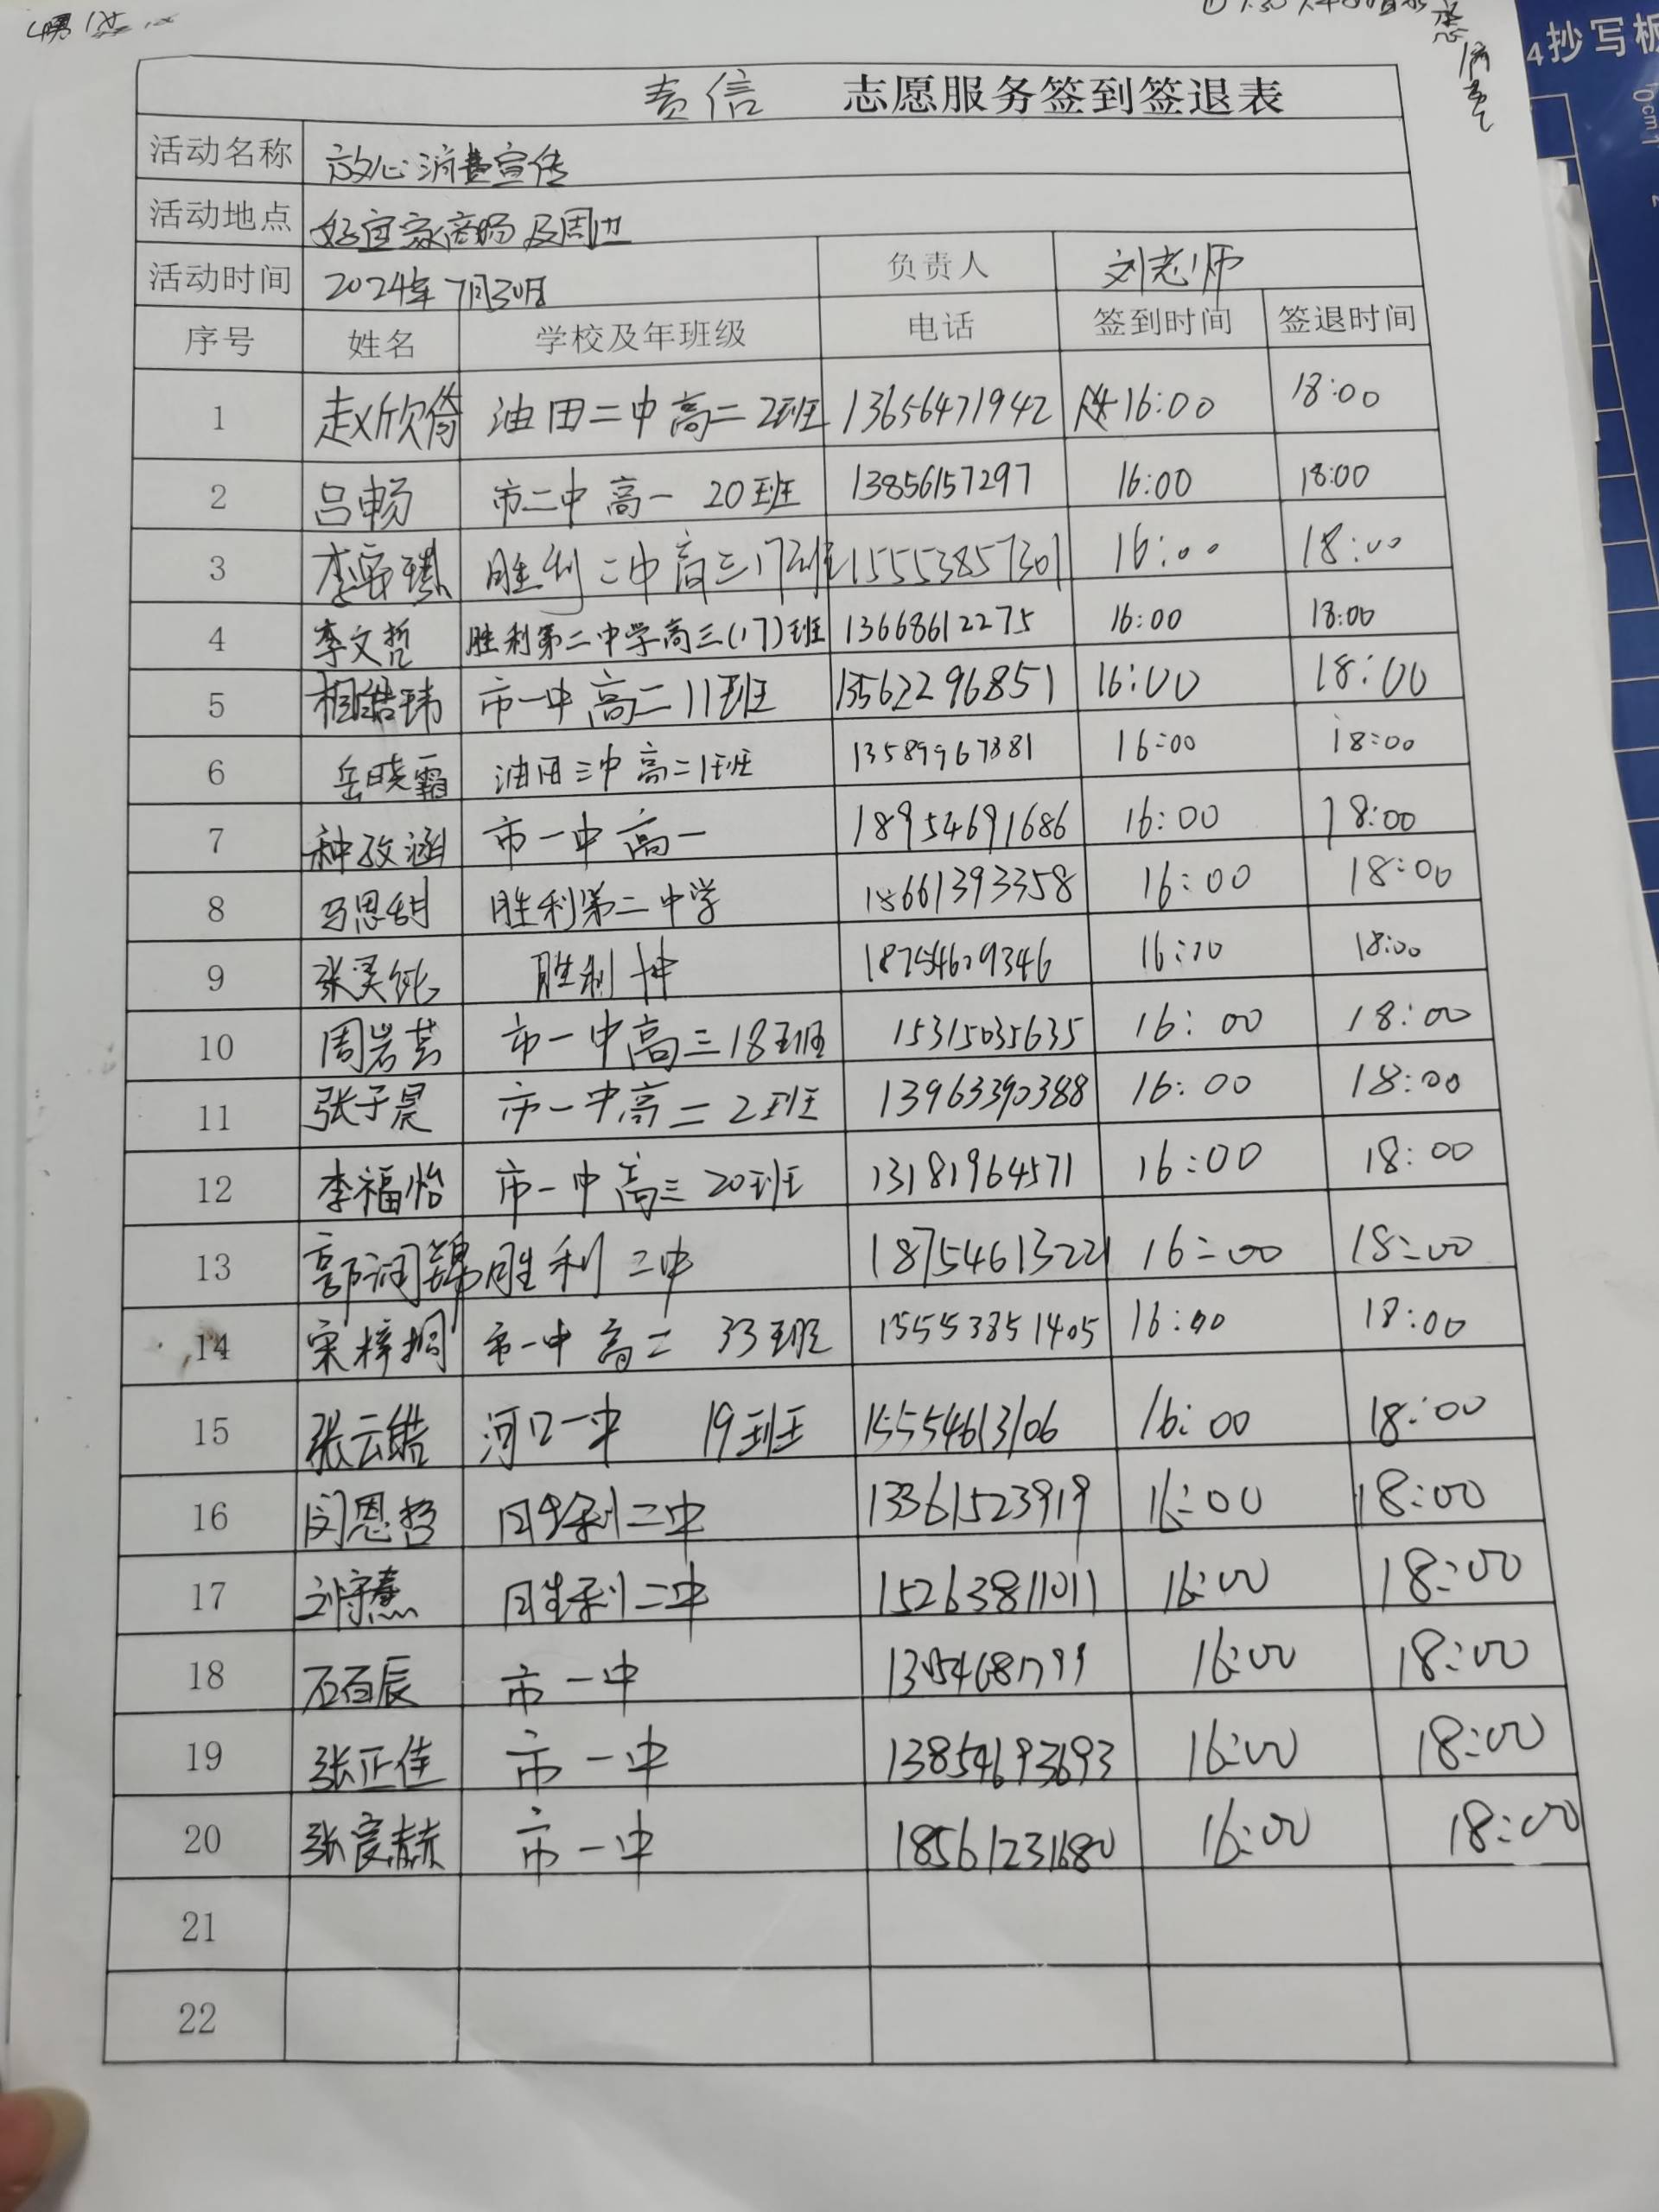 责信 志愿服务签到签退表
活动名称 放心消费宣传
活动地点 好宜家商场及周边
活动时间 2024年7月30日 负责人 刘老师
序号 姓名 学校及年班级 电话 签到时间 签退时间
1 赵欣倚 油田二中高二2班 13656471942 16:00 18:00
2 吕畅 市二中高一 20班 13856157297 16:00 18:00
3 李安琪 胜利二中高三17班 15553857301 16:00 18:00
4 李文哲 胜利第二中学高三(17)班 13668612275 16:00 18:00
5 相皓玮 市一中高二11班 13562296851 16:00 18:00
6 岳晓霜 油田三中高二1班 13589967881 16:00 18:00
7 种孜涵 市一中高一 18954691686 16:00 18:00
8 马思 胜利第二中学 18661393358 16:00 18:00
9 张昊 胜利 18754609346 16:00 18:00
10 周岩芸 市一中高三18班 15315035635 16:00 18:00
11 张子晨 市一中高二2班 13963390388 16:00 18:00
12 李福怡 市一中高三20班 13181964571 16:00 18:00
13 郭润锦 胜利二中 18754613221 16:00 18:00
14 宋梓桐 市一中高二 33班 15553851405 16:00 18:00
15 张云皓 河口一中 19班 15554613106 16:00 18:00
16 闵恩哲 胜利二中 13361523919 16:00 18:00
17 刘宇熹 胜利二中 15263811011 16:00 18:00
18 石百辰 市一中 16:00 18:00
19 张正佳 市一中 13854693693 16:00 18:00
20 张宸赫 市一中 18561231680 16:00 18:00
21
22
4抄写板